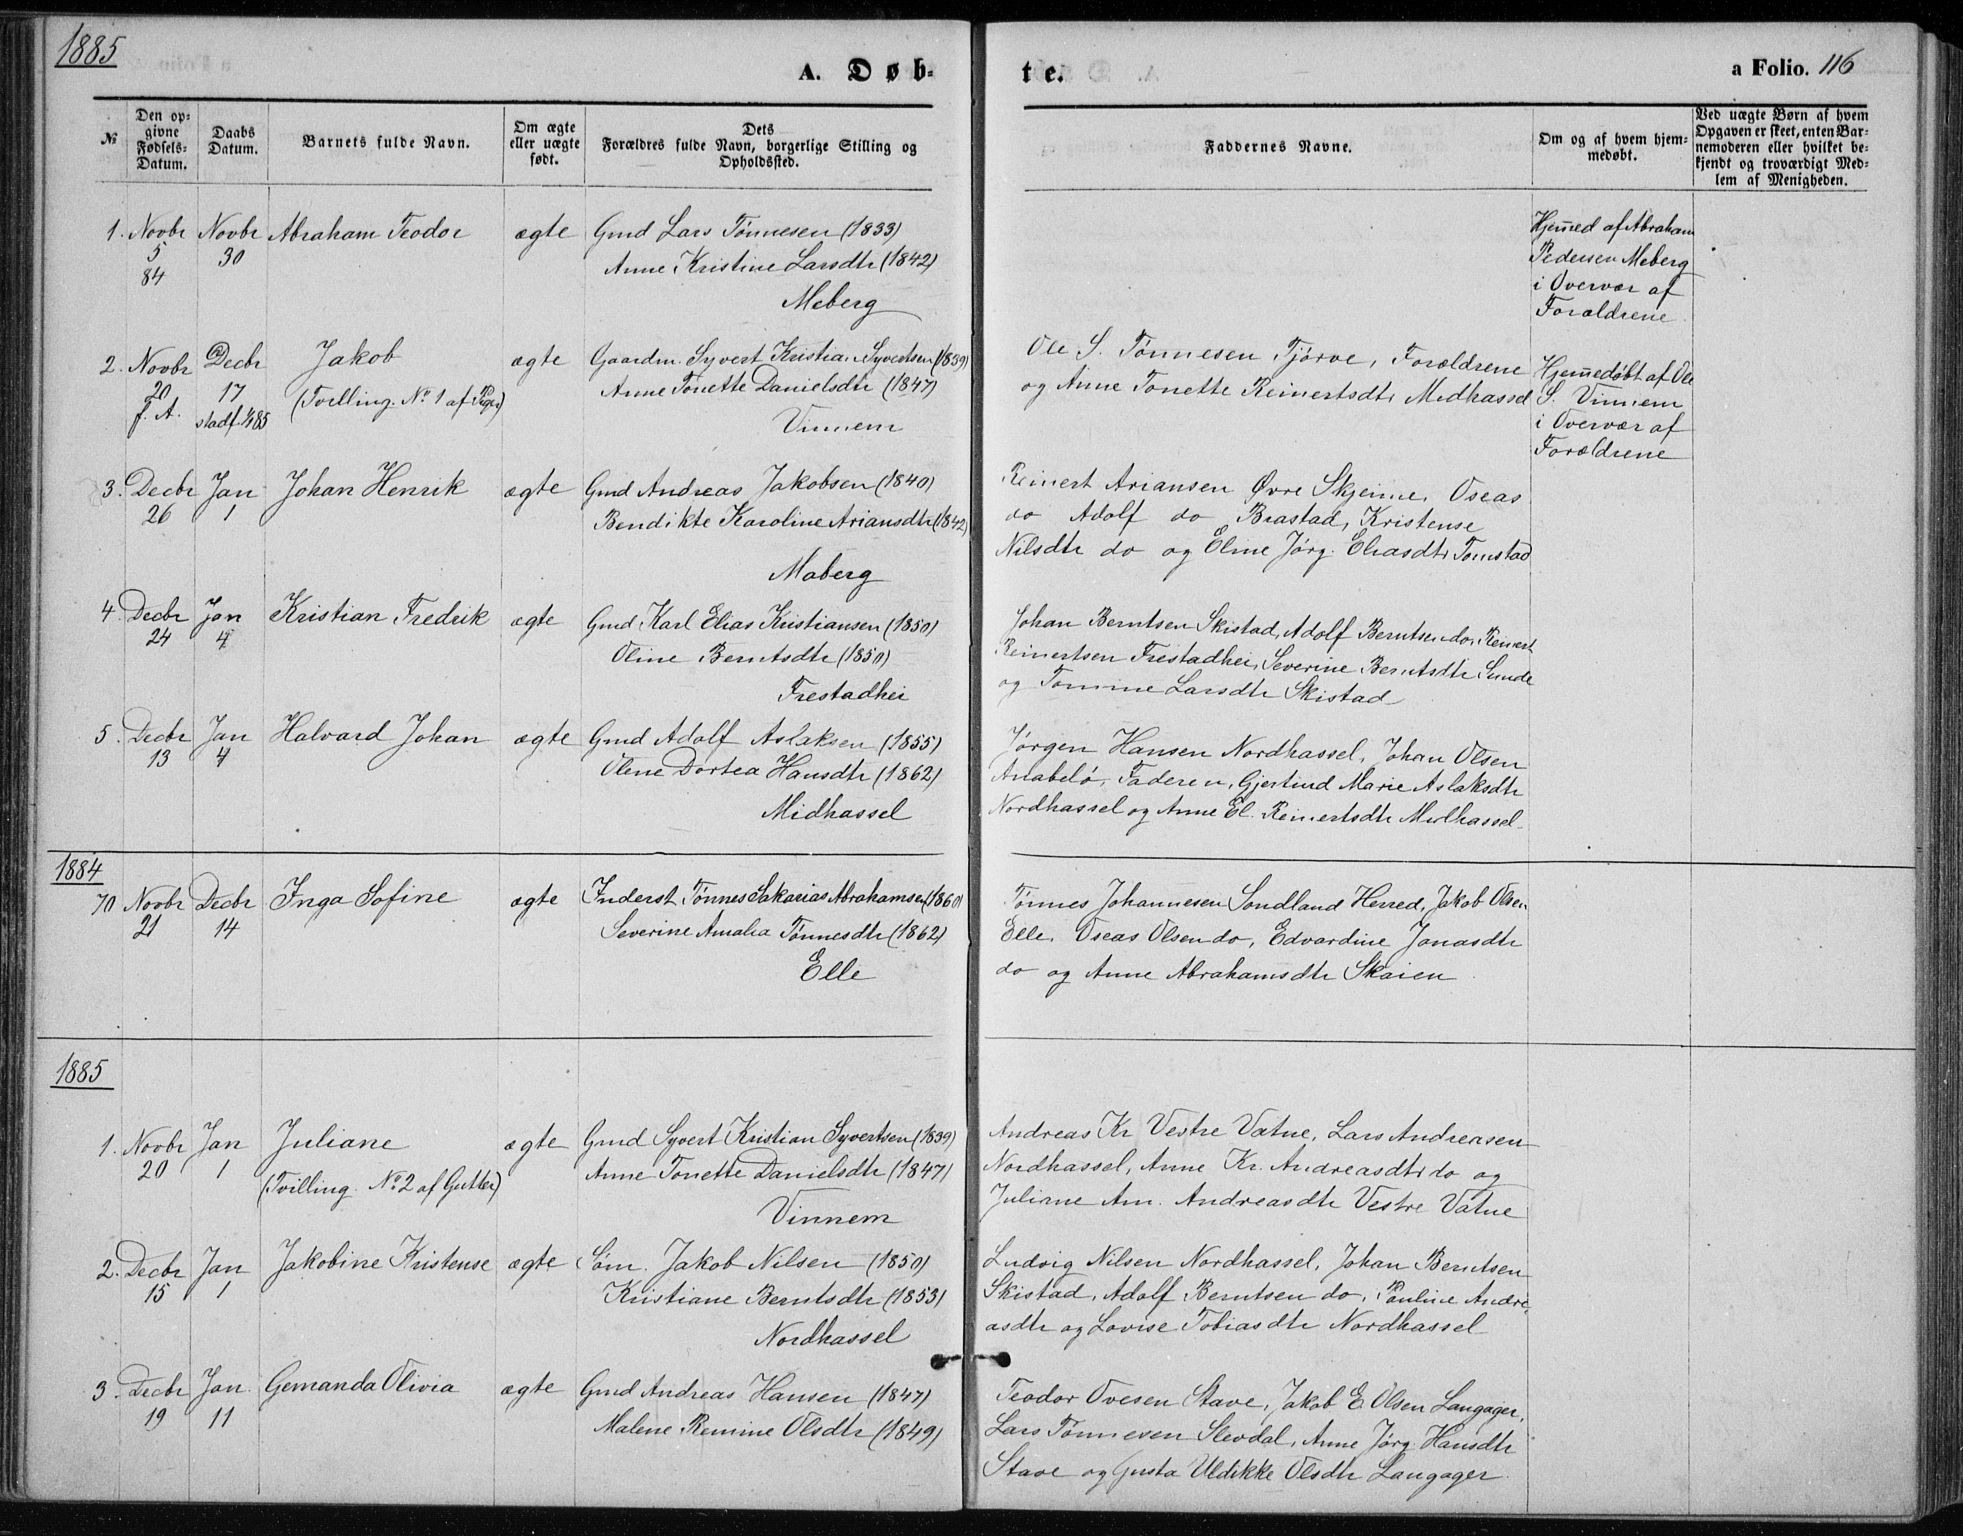 1885
A. Døb-
te.
a Folio. 116
№
Den op-
givne
Fødsels-
Datum.
Daabs
Datum.
Barnets fulde Navn.
Om ægte
eller uægte
født.
Dets
Forældres fulde Navn, borgerlige Stilling og
Opholdssted.
Faddernes Navne.
Om og af hvem hjem-
medøbt.
Ved uægte Børn af hvem
Opgaven er skeet, enten Bar-
nemoderen eller hvilket be-
kjendt og troværdigt Med-
lem af Menigheden.
1. Novbr Novbr Abraham Teodor ægte Gmd Lars Tønnesen (1833)
5 30 Anne Kristine Larsdtr (1842)
84 Meberg
Hjem̄ed af Abraham
Pedersen Meberg
i Overvær af
Forældrene
2. Novbr Decbr Jakob ægte Gaardm. Syvert Kristian Syvertsen (1839)
20 17 (Tvilling. No 1 af Piger) Anne Tonette Danielsdtr (1847)
f. A. stadf. 1/1 85 Vinnem
Ole S. Tønnesen Tjørve, Forældrene
og Anne Tonette Reinertsdtr Midhassel
Hjem̄edøbt af Ole
S. Vinnem
i Overvær af
Forældrene
3. Decbr Jan Johan Henrik ægte Gmd Andreas Jakobsen (1840)
26 1 Bendikte Karoline Ariansdtr (1842)
Maberg
Reinert Ariansen Øvre Skjeime, Oseas
do Adolf do Brastad, Kristense
Nilsdtr do og Eline Jørg. Eliasdtr Tomstad
4. Decbr Jan Kristian Fredrik ægte Gmd Karl Elias Kristiansen (1850)
24 4 Oline Berntsdtr (1850)
Frestadhei
Johan Berntsen Skistad, Adolf Berntsen do, Reinert
Reinertsen Frestadhei, Severine Berntsdtr Sunde
og Tomine Larsdtr Skistad
5. Decbr Jan Halvard Johan ægte Gmd Adolf Aslaksen (1855)
13 4 Olene Dortea Hansdtr (1862)
Midhassel
Jørgen Hansen Nordhassel, Johan Olsen
Anabelø, Faderen, Gjertind Marie Aslaksdtr
Nordhassel og Anne El. Reinertsdtr Midhassel
1884
70 Novbr Decbr Inga Sofine ægte Inderst Tønnes Sakarias Abrahamsen (1860)
21 14 Severine Amalia Tønnesdtr (1862)
Elle
Tønnes Johannesen Sondland Herred, Jakob Olsen
Elle, Oseas Olsen do, Edvardine Jonasdtr
do og Anne Abrahamsdtr Skaien
1885
1. Novbr Jan Juliane ægte Gmd Syvert Kristian Syvertsen (1839)
20 1 (Tvilling. No 2 af Gutter) Anne Tonette Danielsdtr (1847)
Vinnem
Andreas Kr Vestre Vatne, Lars Andreasen
Nordhassel, Anne Kr. Andreasdtr do og
Juliane Am. Andreasdtr Vestre Vatne
2. Decbr Jan Jakobine Kristense ægte Søm. Jakob Nilsen (1850)
15 1 Kristiane Berntsdtr (1853)
Nordhassel
Ludvig Nilsen Nordhassel, Johan Berntsen
Skistad, Adolf Berntsen do, Pauline Andre
asdtr og Lovise Tobiasdtr Nordhassel
3. Decbr Jan Gemanda Olivia ægte Gmd Andreas Hansen (1847)
19 11 Malene Remine Olsdtr (1849)
Teodor Ovesen Stave, Jakob E. Olsen Langager,
Lars Tønnesen Slevdal, Anne Jørg. Hansdtr
Stave og Gusta Uldikke Olsdtr Langager